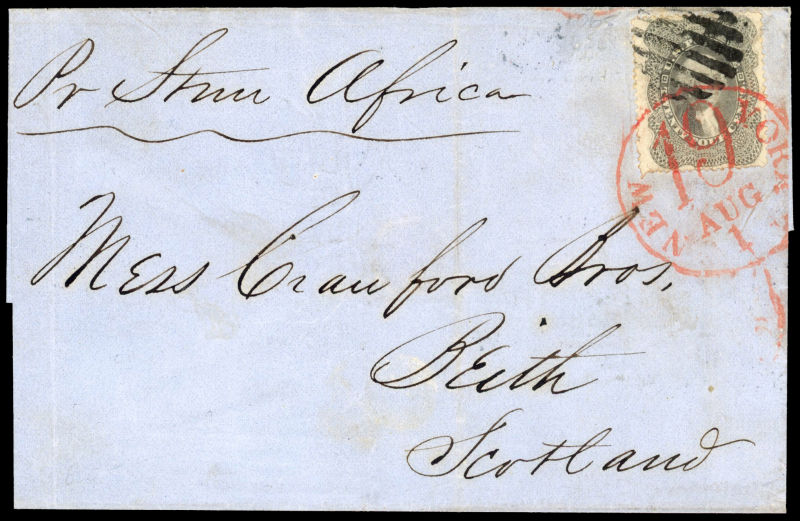 Pr Stmr Africa
Mess Crawford Bros.
Beith
Scotland
NEW YORK
19
AUG
1